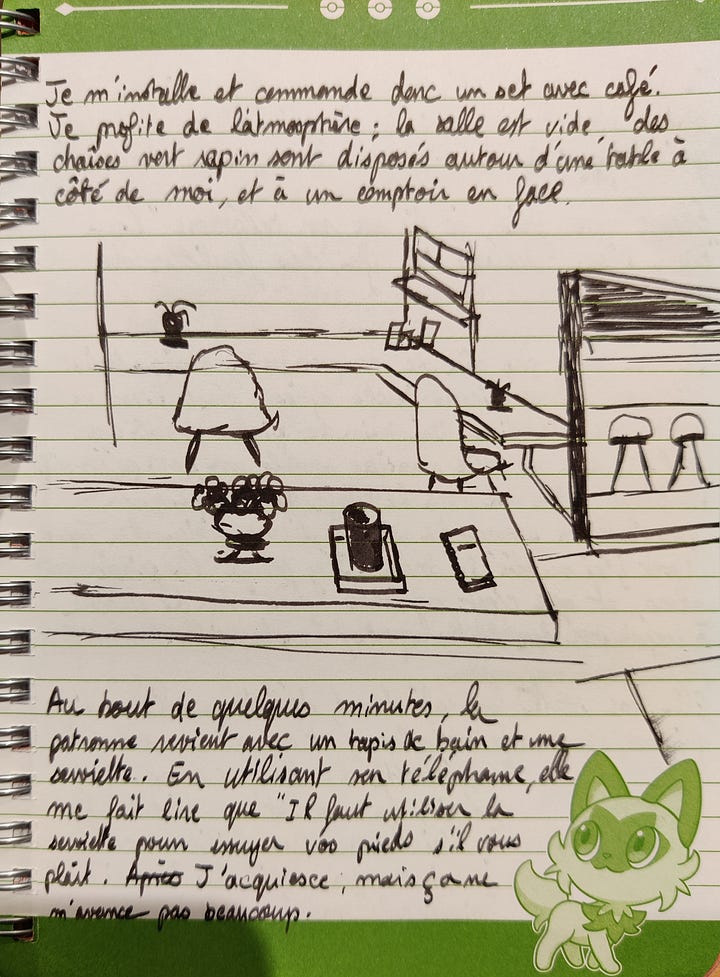 Je m'installe et commande donc un set avec café.
Je profite de l'atmosphère ; la salle est vide des
chaises vert sapin sont disposés autour d'une table à
côté de moi, et à un comptoir en face.
Au bout de quelques minutes, la
patronne revient avec un tapis de bain et une
serviette. En utilisant son téléphone, elle
me fait lire que "Il faut utiliser la
serviette pour essuyer vos pieds s'il vous
plaît. Après J'acquiesce, mais ça ne
m'avance pas beaucoup.